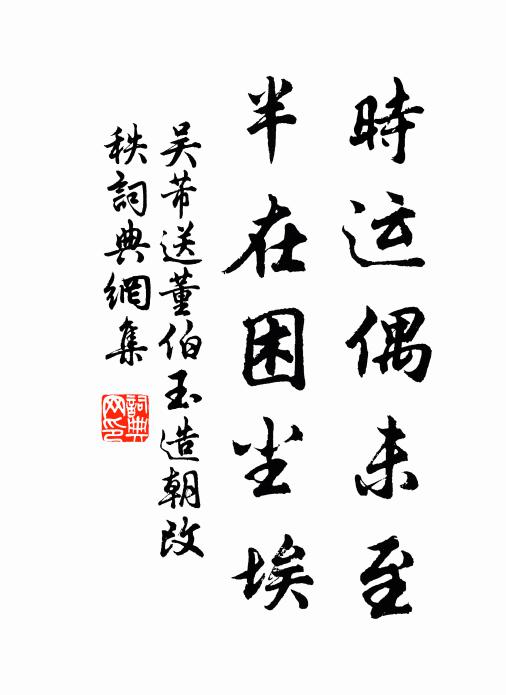 時运偶未至
半在困尘埃
吴芾送董伯玉造朝改
秩詞典網集
詞典
网印